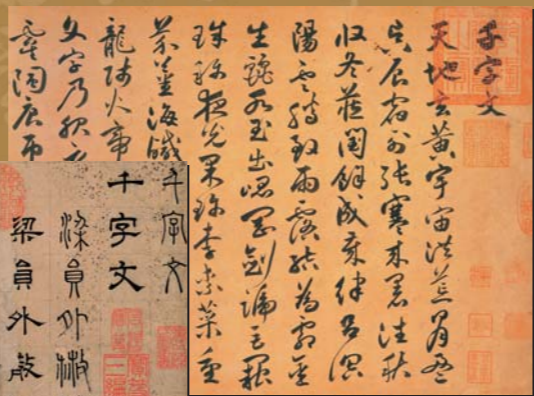 千字文
天地玄黃宇宙洪荒日月盈
昃辰宿列張寒來暑往秋
收冬蔵閏餘成歲律呂調
陽雲騰致雨露結為霜金
生麗水玉出崑岡劍號巨闕
珠稱夜光果珍李柰菜重
芥薑海鹹
龍師火帝
文字乃服衣
虞陶唐弔
千字文
千字文
梁員外散
梁員外散